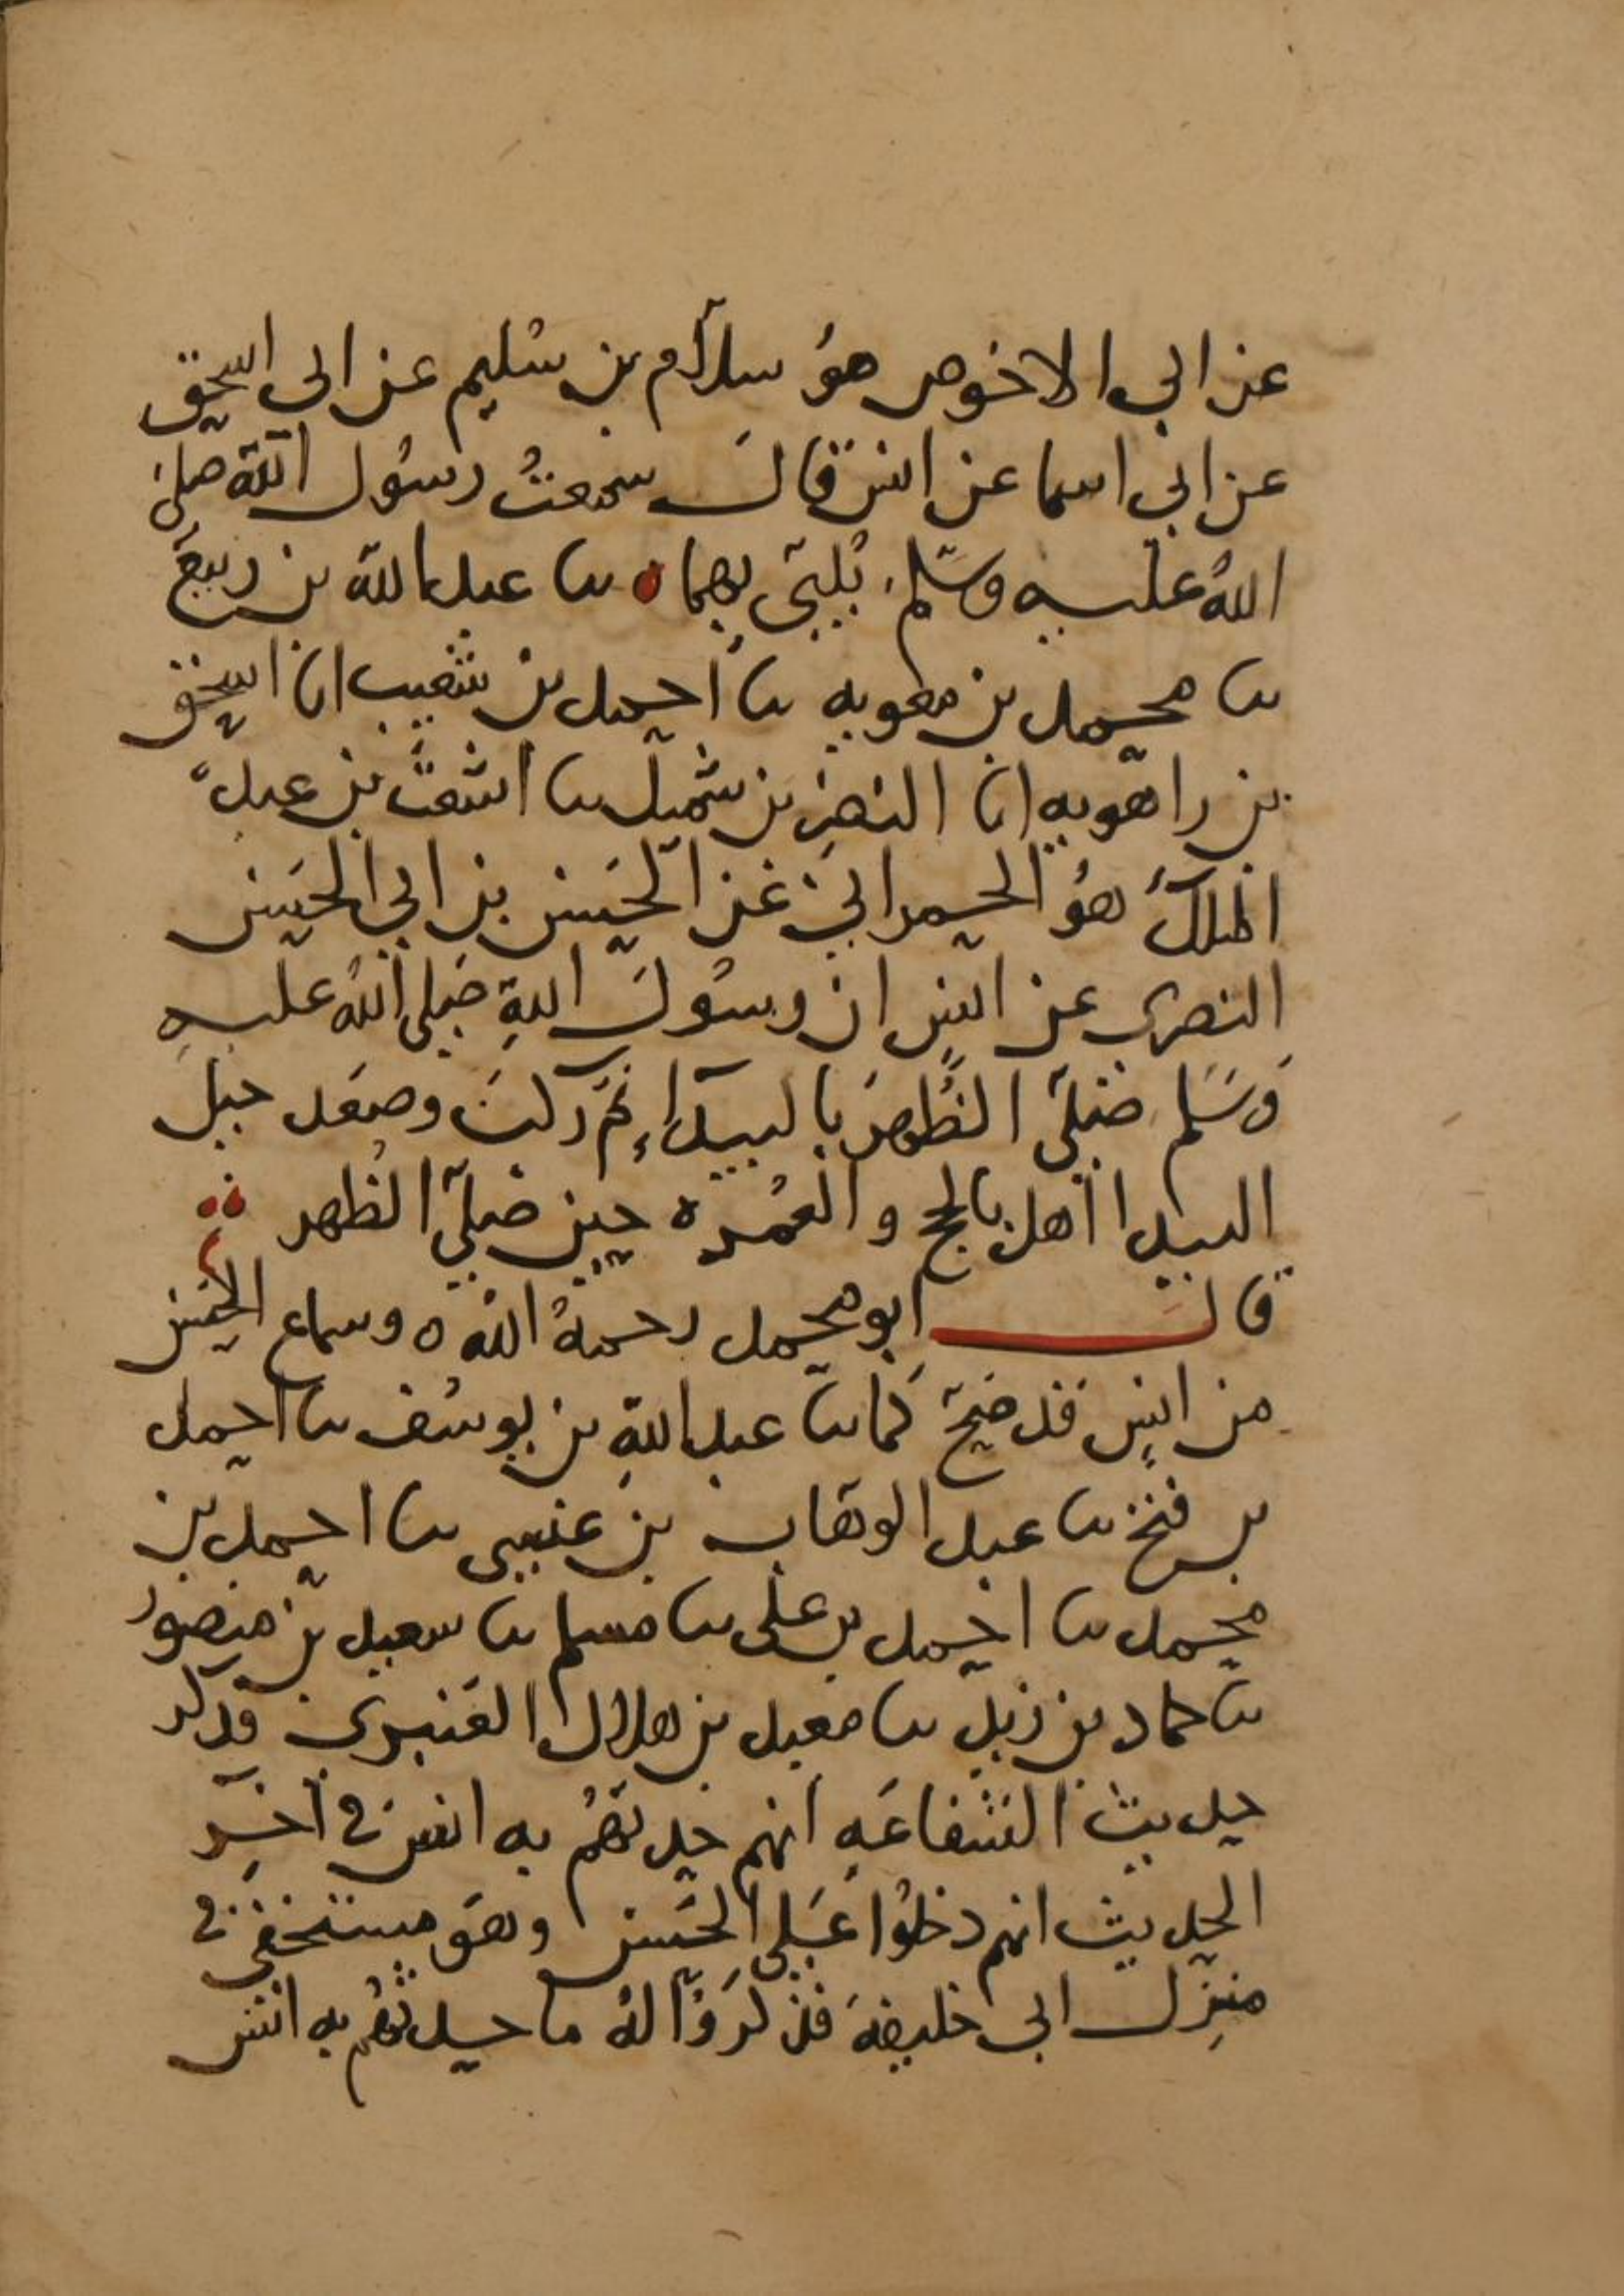 عن ابي الاحوص هو سلام بن سليم عن ابي اسحق
عن ابي اسما عن انس قال سمعت رسول الله صلى
الله عليه وسلم يلبي بهما ه نا عبد الله بن ربيع
نا محمد بن معويه نا احمد بن شعيب انا اسحق
بن راهويه انا النضر بن شميل نا اشعث بن عبد
الملك هو الحمراني عن الحسن بن ابي الحسن
البصري عن انس ان رسول الله صلى الله عليه
وسلم صلى الظهر بالبيداء ثم ركب وصعد جبل
البيدا اهل بالحج والعمره حين صلى الظهر
قال ابو محمد رحمه الله ه وسماع الحسن
من انس قد صح كما نا عبد الله بن يوسف نا احمد
بن فتح نا عبد الوهاب بن عيسى نا احمد بن
محمد نا احمد بن علي نا مسلم نا سعيد بن منصور
نا حماد بن زيد نا معبد بن هلال العنبري فذكر
حديث الشفاعه انهم حدثهم به انس في آخر
الحديث انهم دخلوا على الحسن وهو مستخفي في
منزل ابي خليفه فذكروا له ما حدثهم به انس